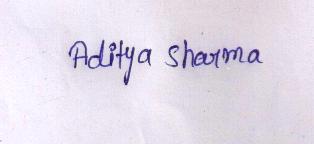 Aditya Sharma